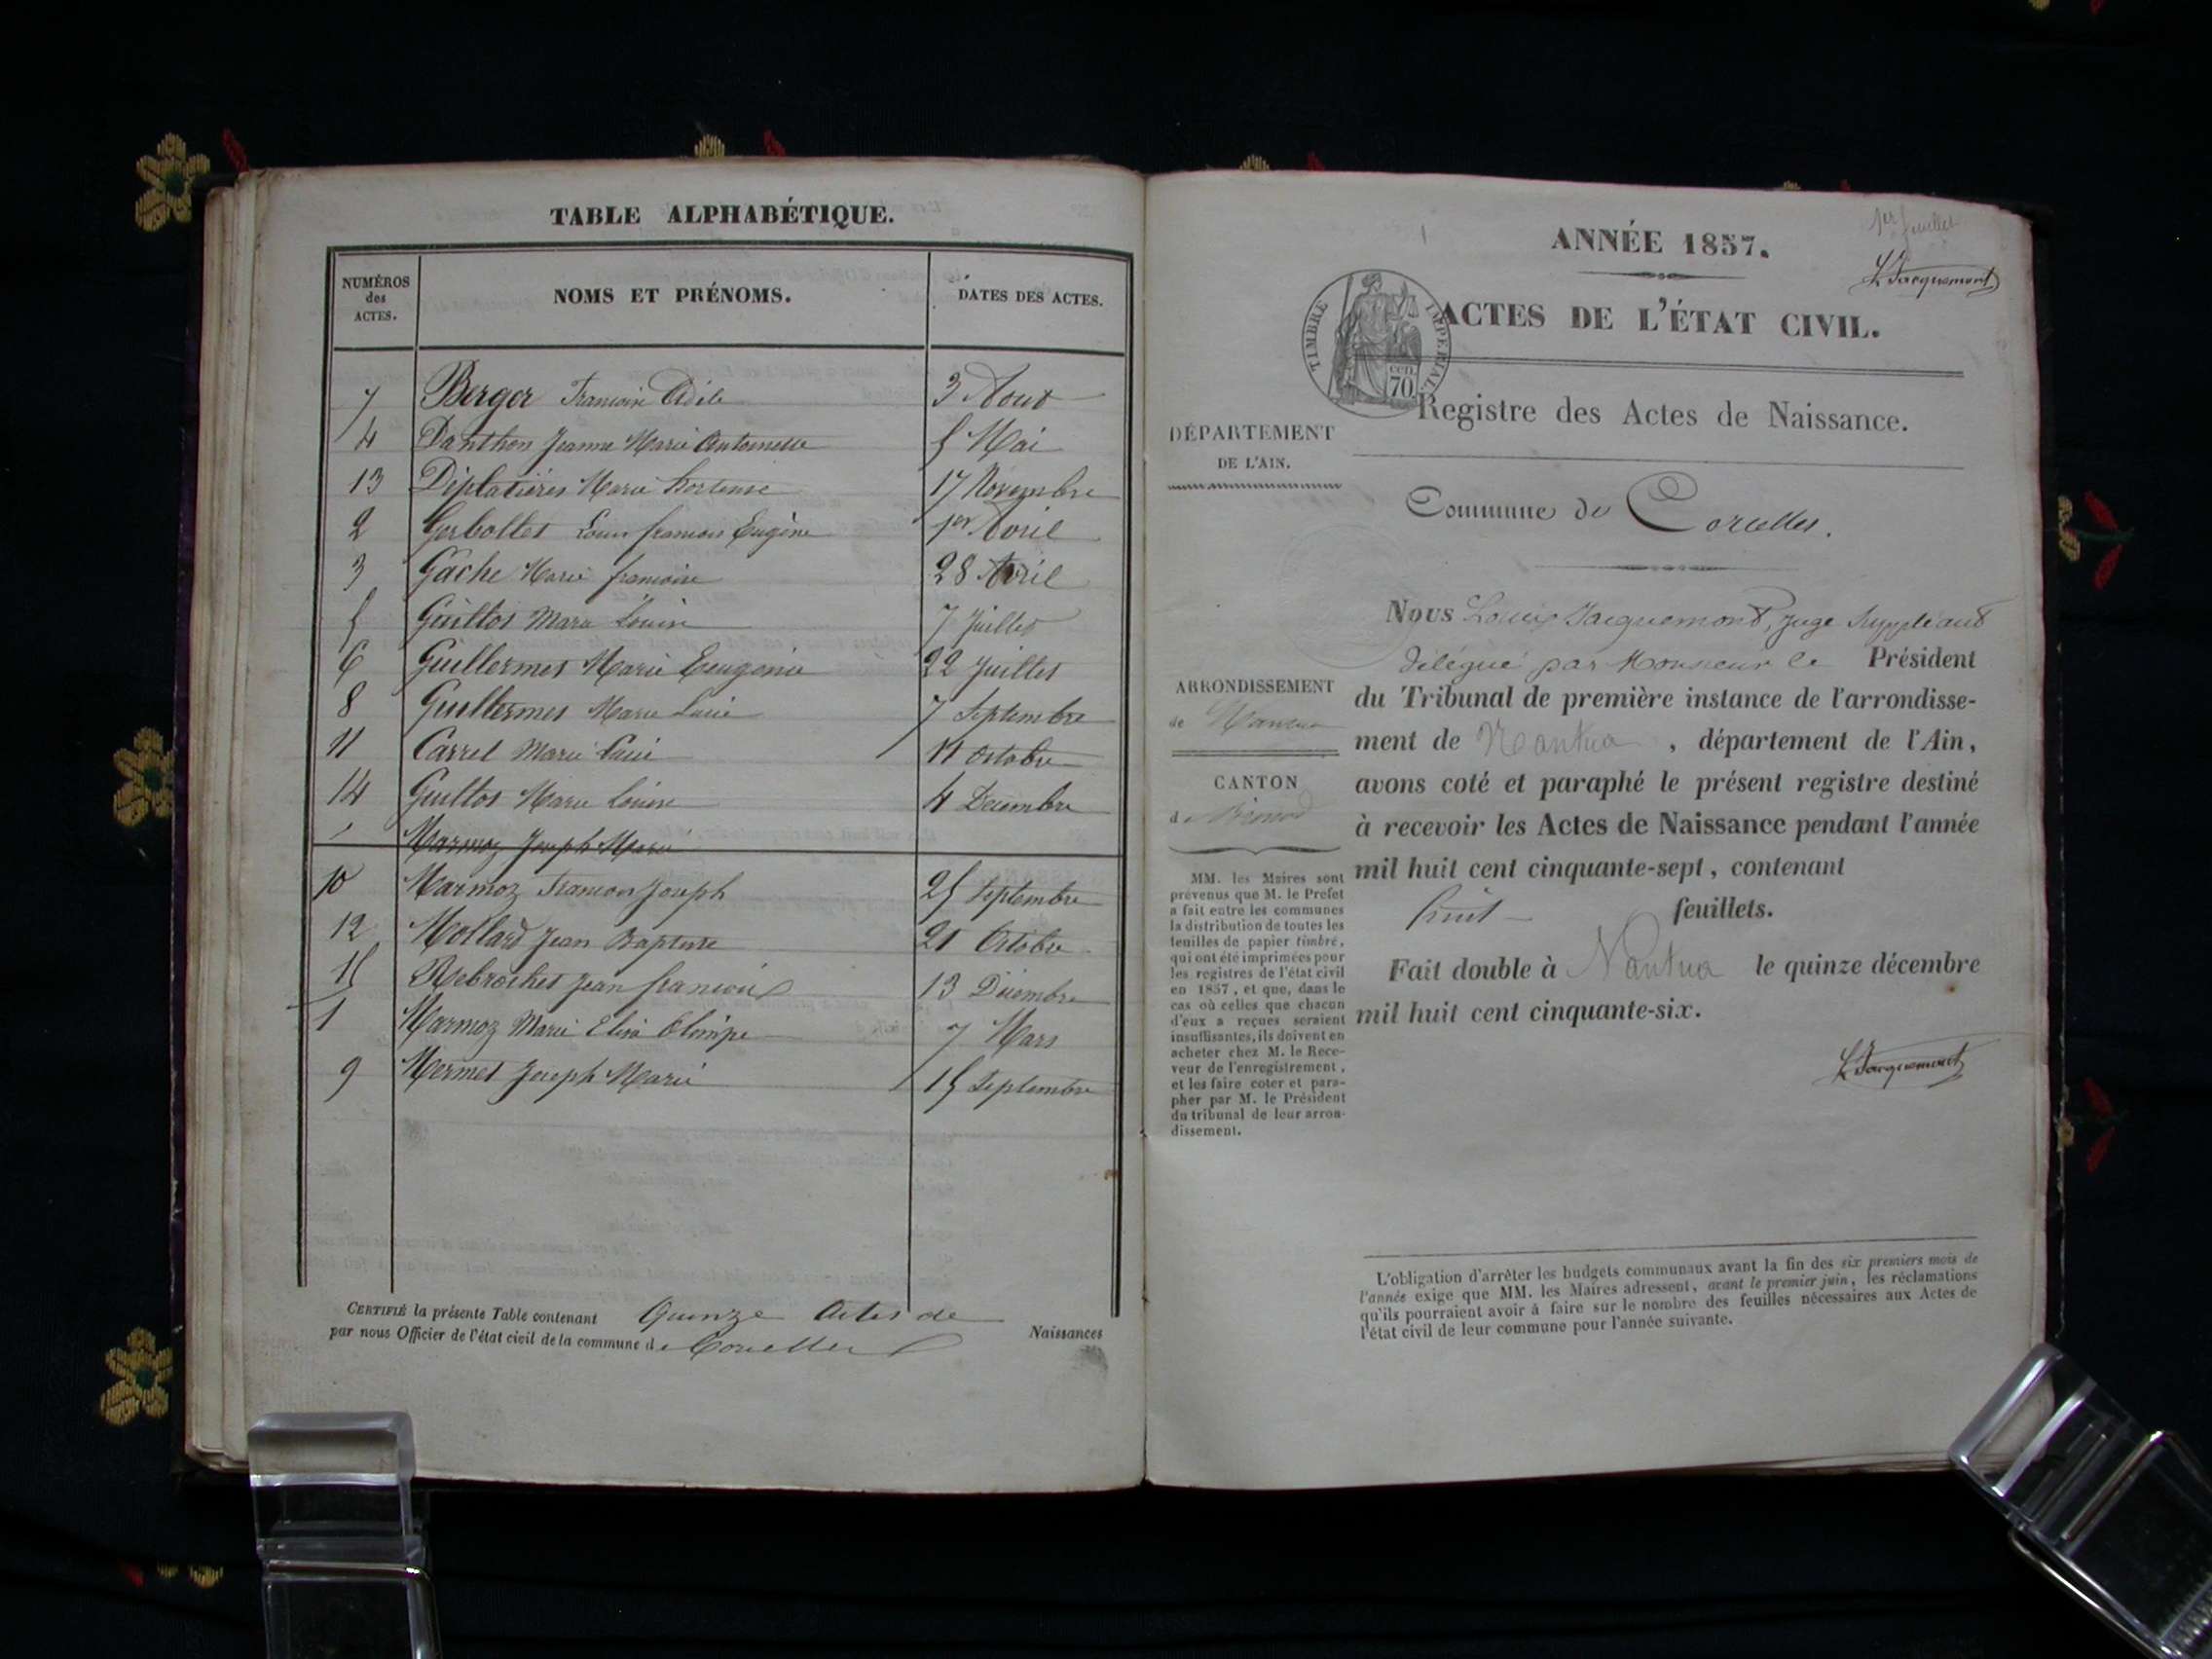 TABLE ALPHABÉTIQUE.
NUMÉROS des ACTES. NOMS ET PRÉNOMS. DATES DES ACTES.
7 Berger Francoise Adile 3 Aout
4 Danthon Jeanne Marie Antoinette 5 Mai
13 Déplatières Marie hortense 17 Novembre
2 Gerbollet Louis francois Eugène 1er Avril
3 Gache Marie francoise 28 Avril
5 Guillot Marie Louise 7 Juillet
6 Guillermet Marie Eeugenie 22 Juillet
8 Guillermet Marie Lucie 7 Septembre
11 Carrel Marie Lucie 11 Octobre
14 Guillot Marie Louise 4 Décembre
Marmoz Joseph Marie
10 Marmoz Francois Joseph 25 Septembre
12 Mollard Jean Baptiste 21 Octobre
15 Rebrochet Jean francois 13 Décembre
1 Marmoz Marie Elisa Olimpe 7 Mars
9 Mermet Joseph Marie 15 Septembre
CERTIFIÉ la présente Table contenant Quinze Actes de Naissances
par nous Officier de l'état civil de la commune de Corcelles
1er feuillet
L Jacquemont
ANNÉE 1857.
TIMBRE IMPERIAL.
CEN. 70
ACTES DE L'ÉTAT CIVIL.
Registre des Actes de Naissance.
DÉPARTEMENT
DE L'AIN.
Commune de Corcelles.
ARRONDISSEMENT
de Nantua
CANTON
de Brénod
MM. les Maires sont
prévenus que M. le Préfet
a fait entre les communes
la distribution de toutes les
feuilles de papier timbré,
qui ont été imprimées pour
les registres de l'état civil
en 1857, et que, dans le
cas où celles que chacun
d'eux a reçues seraient
insuffisantes, ils doivent en
acheter chez M. le Rece-
veur de l'enregistrement,
et les faire coter et para-
pher par M. le Président
du tribunal de leur arron-
dissement.
Nous Louis Jacquemont, Juge Suppléant
délégué par Monsieur le Président
du Tribunal de première instance de l'arrondisse-
ment de Nantua, département de l'Ain,
avons coté et paraphé le présent registre destiné
à recevoir les Actes de Naissance pendant l'année
mil huit cent cinquante-sept, contenant
huit feuillets.
Fait double à Nantua le quinze décembre
mil huit cent cinquante-six.
L Jacquemont
L'obligation d'arrêter les budgets communaux avant la fin des six premiers mois de
l'année exige que MM. les Maires adressent, avant le premier juin, les réclamations
qu'ils pourraient avoir à faire sur le nombre des feuilles nécessaires aux Actes de
l'état civil de leur commune pour l'année suivante.